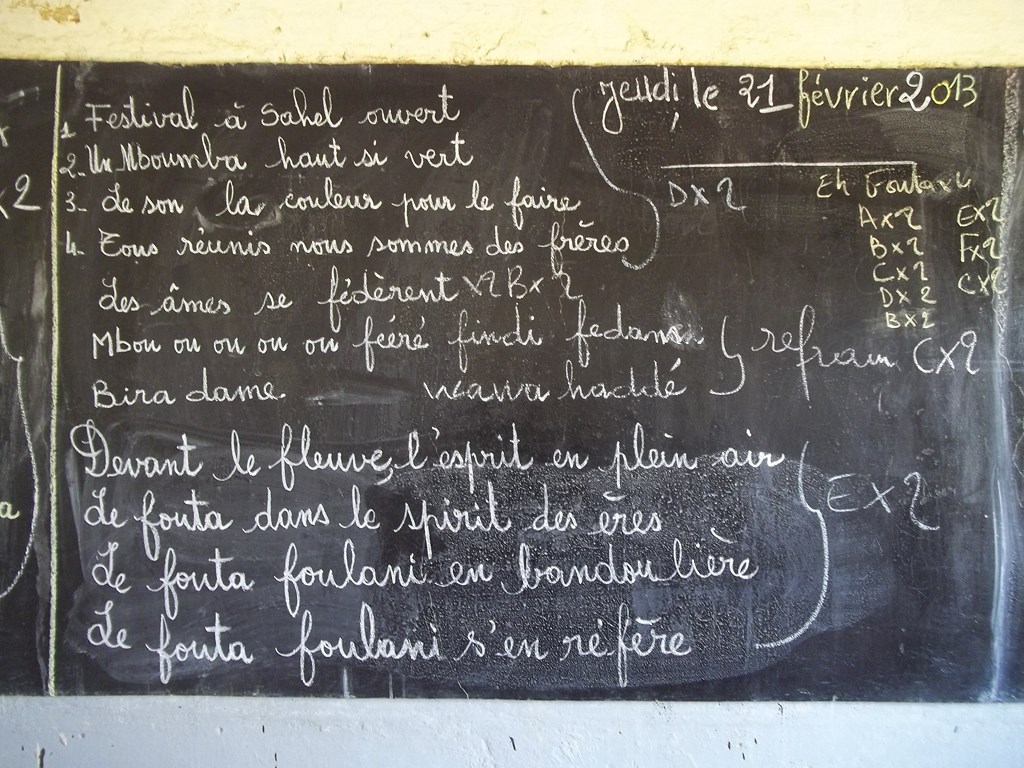 jeudi le 21 février 2013
1. Festival à Sahel ouvert
2. Un Mboumba haut si vert
3- Le son la couleur pour le faire
4. Tous réunis nous sommes des frères
D x 2
Les âmes se fédèrent x2 B x 2
Mbou ou ou ou ou fééré findi
Bira dame wawa haddé
refrain C x 2
Devant le fleuve, l'ésprit en plein air
Le fouta dans le spirit des ères
Le fouta foulani en bandoulière
Le fouta foulani s'en réfère
E x 2
Eh Fouta
A x 2
B x 2
C x 2
D x 2
B x 2
E x 2
F x 2
C x 2
x 2
a